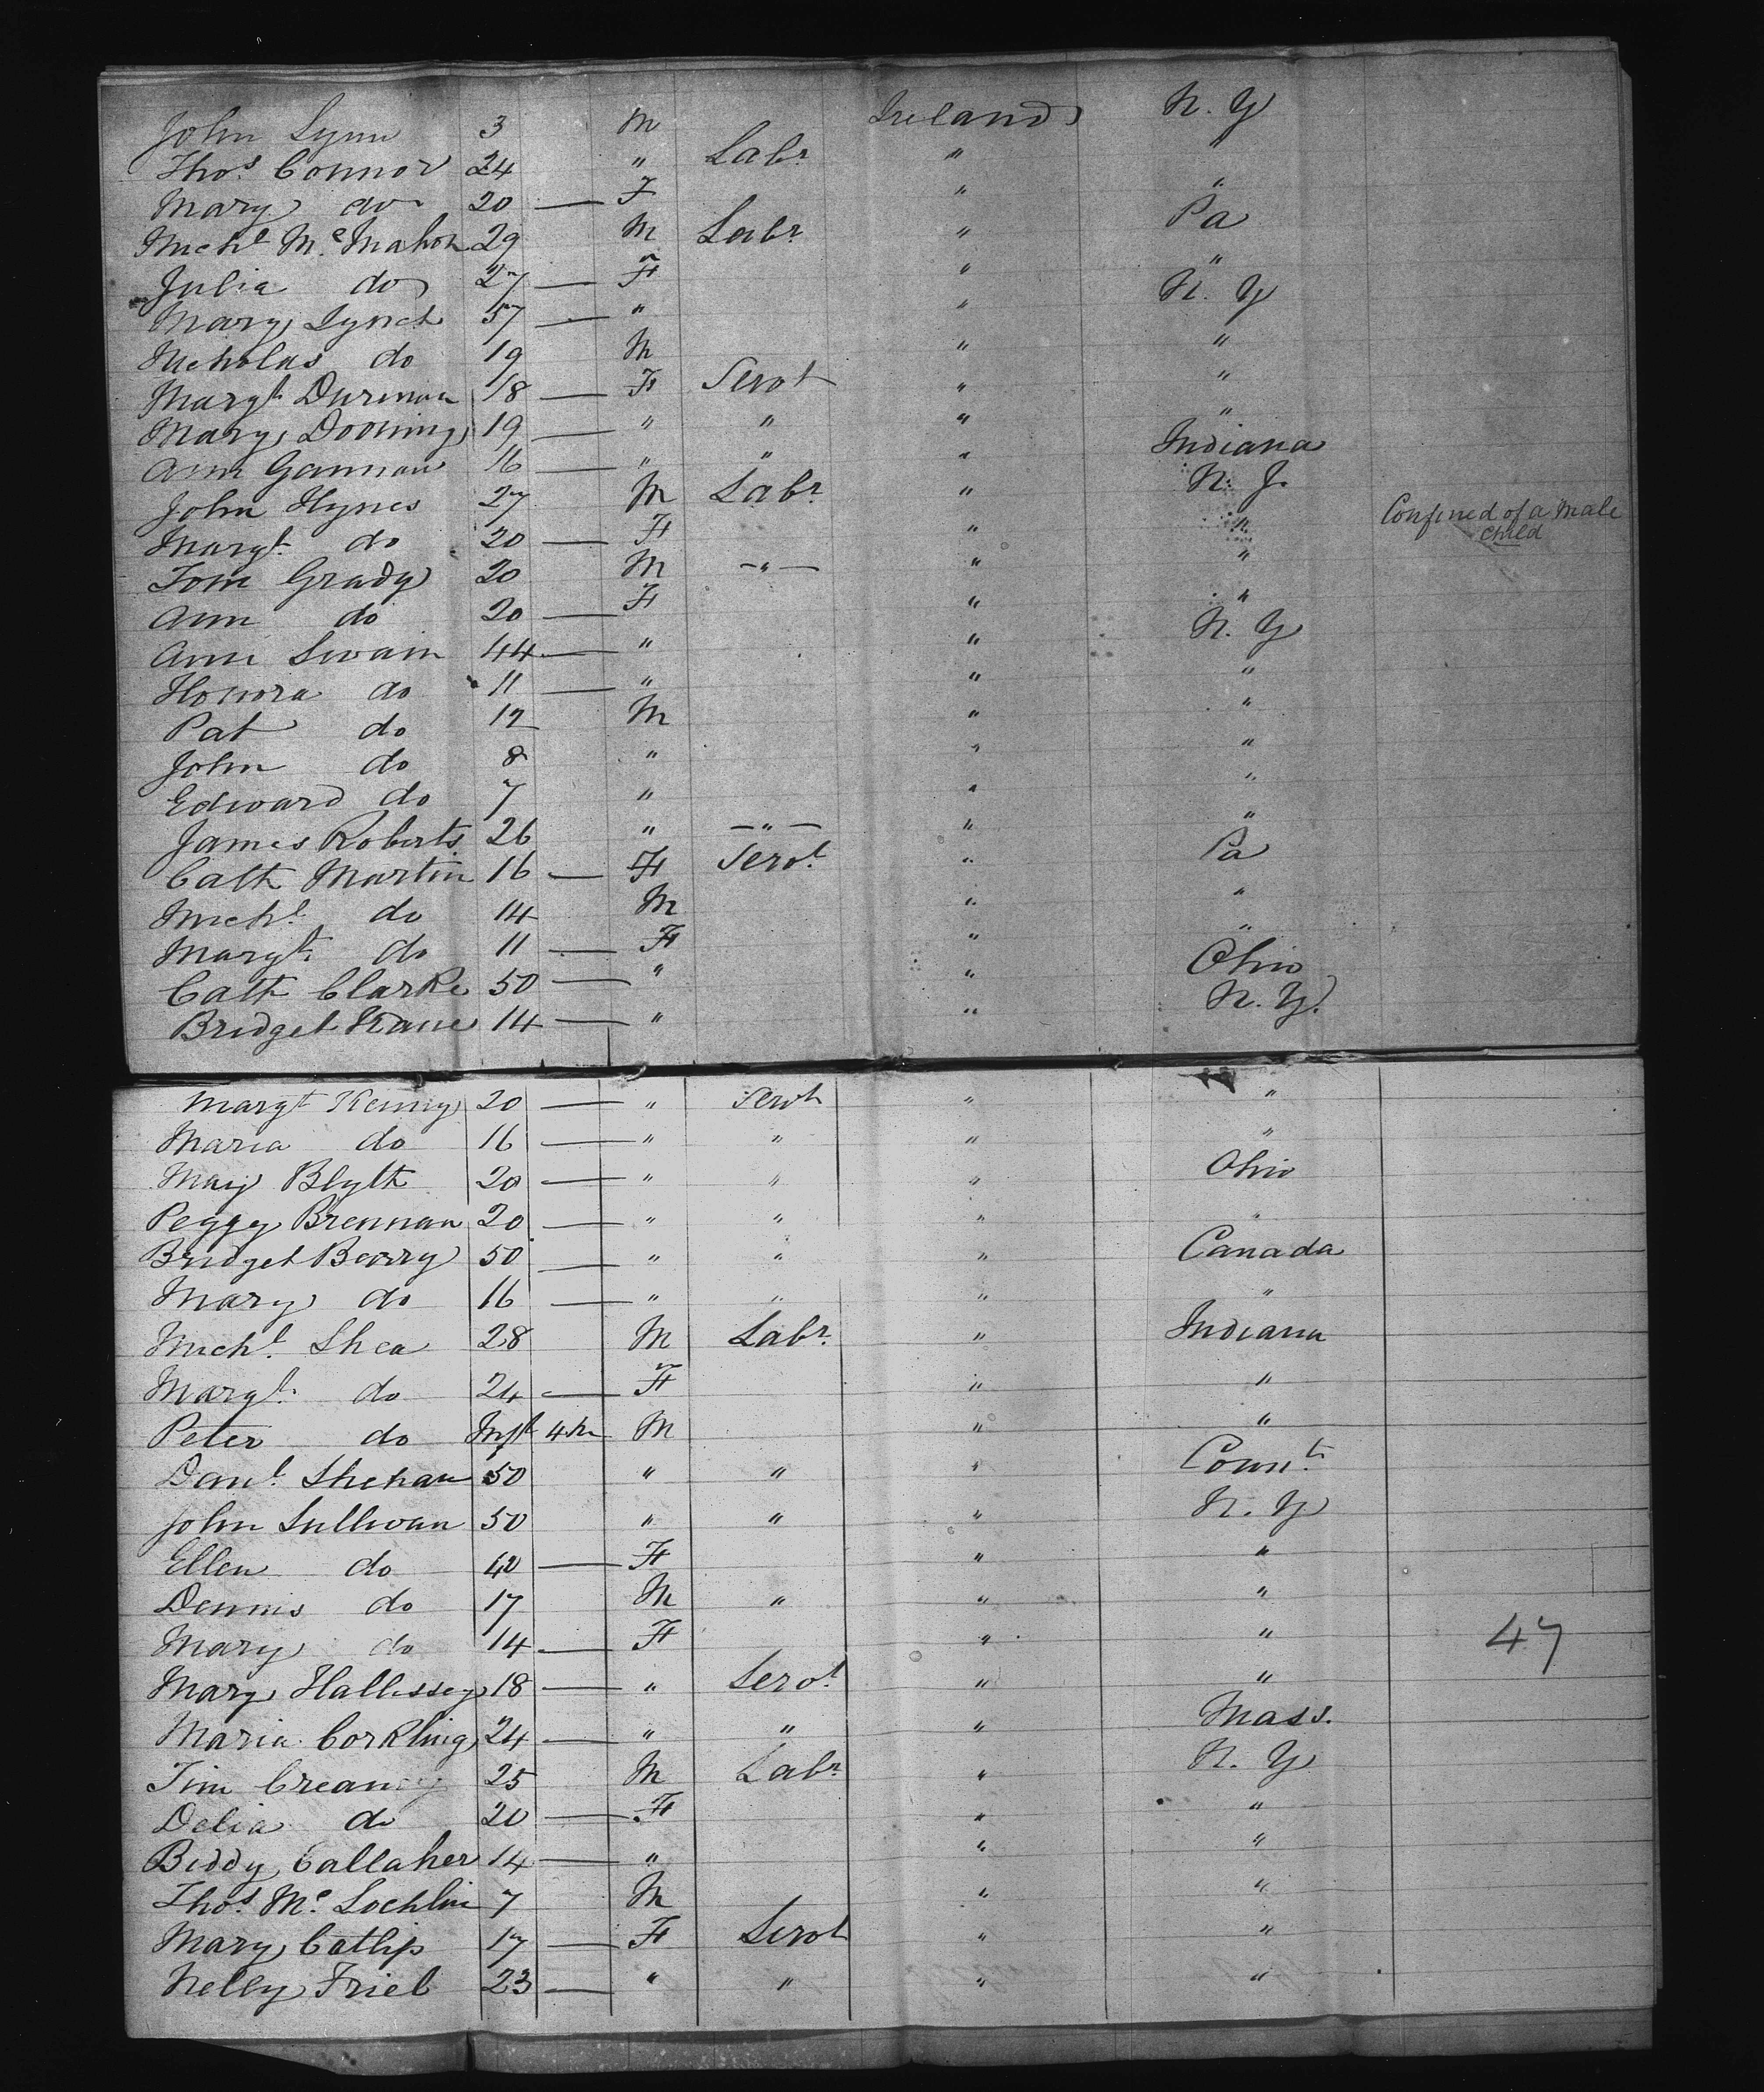 John Lynn 3 M Ireland N. Y
Thos. Connor 24 " Labr. " "
Mary do 20 — F " "
Michl. Mc. Mahon 29 M Labr " Pa
Julia do 27 — F " "
Mary Lynch 57 — " " N. Y
Nicholas do 19 M " "
Margt. 18 — F Servt " "
Mary 19 — " " " "
Ann Gannan 16 — " " " Indiana
John Hynes 27 M Labr. " N. J.
Margt. do 20 — F " " Confined of a male child
Tom Grady 20 M —"— " "
Ann do 20 — F " "
Ann Swain 44 — " " N. Y
Honora do 11 — " " "
Pat do 12 M " "
John do 8 " " "
Edward do 7 " " "
James Roberts 26 " —"— " "
Cath Martin 16 — F Servt. " Pa
Michl. do 14 M " "
Margt. do 11 — F " "
Cath Clarke 50 — " " Ohio
Bridget Kane 14 — " " N. Y.
Margt Kenny 20 — " Servt " "
Maria do 16 — " " " "
May Blyth 20 — " " " Ohio
Peggy Brennan 20 — " " " "
Bridget Barry 50 — " " " Canada
Mary do 16 — " " " "
Michl. Shea 28 M Labr. " Indiana
Margt. do 24 — F " "
Peter do Inft 4 M " "
Danl. Shehan 50 " " " Connt.
John Sullivan 50 " " " N. Y
Ellen do 40 — F " "
Dennis do 17 M " " "
Mary do 14 — F " " 47
Mary Hallissey 18 — " Servt " "
Maria Corkling 24 — " " " Mass.
Tim Creaney 25 M Labr " N. Y
Delia do 20 — F " "
Biddy Callaher 14 — " " "
Thos. Mc. Lochlin 7 M " "
Mary Catlip 17 — F Servt " "
Nelly Friel 23 — " " " "